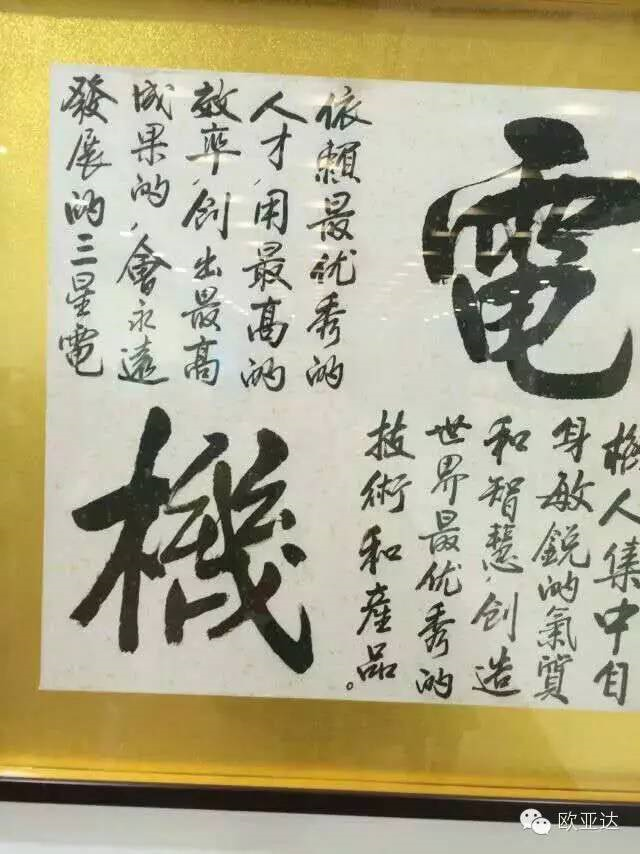 電
依賴最优秀的
人才,用最高的
效率,创出最高
成果的,會永遠
發展的三星電
機人集中自
身敏銳的氣質
和智慧,创造
世界最优秀的
技術和產品。
機
欧亚达